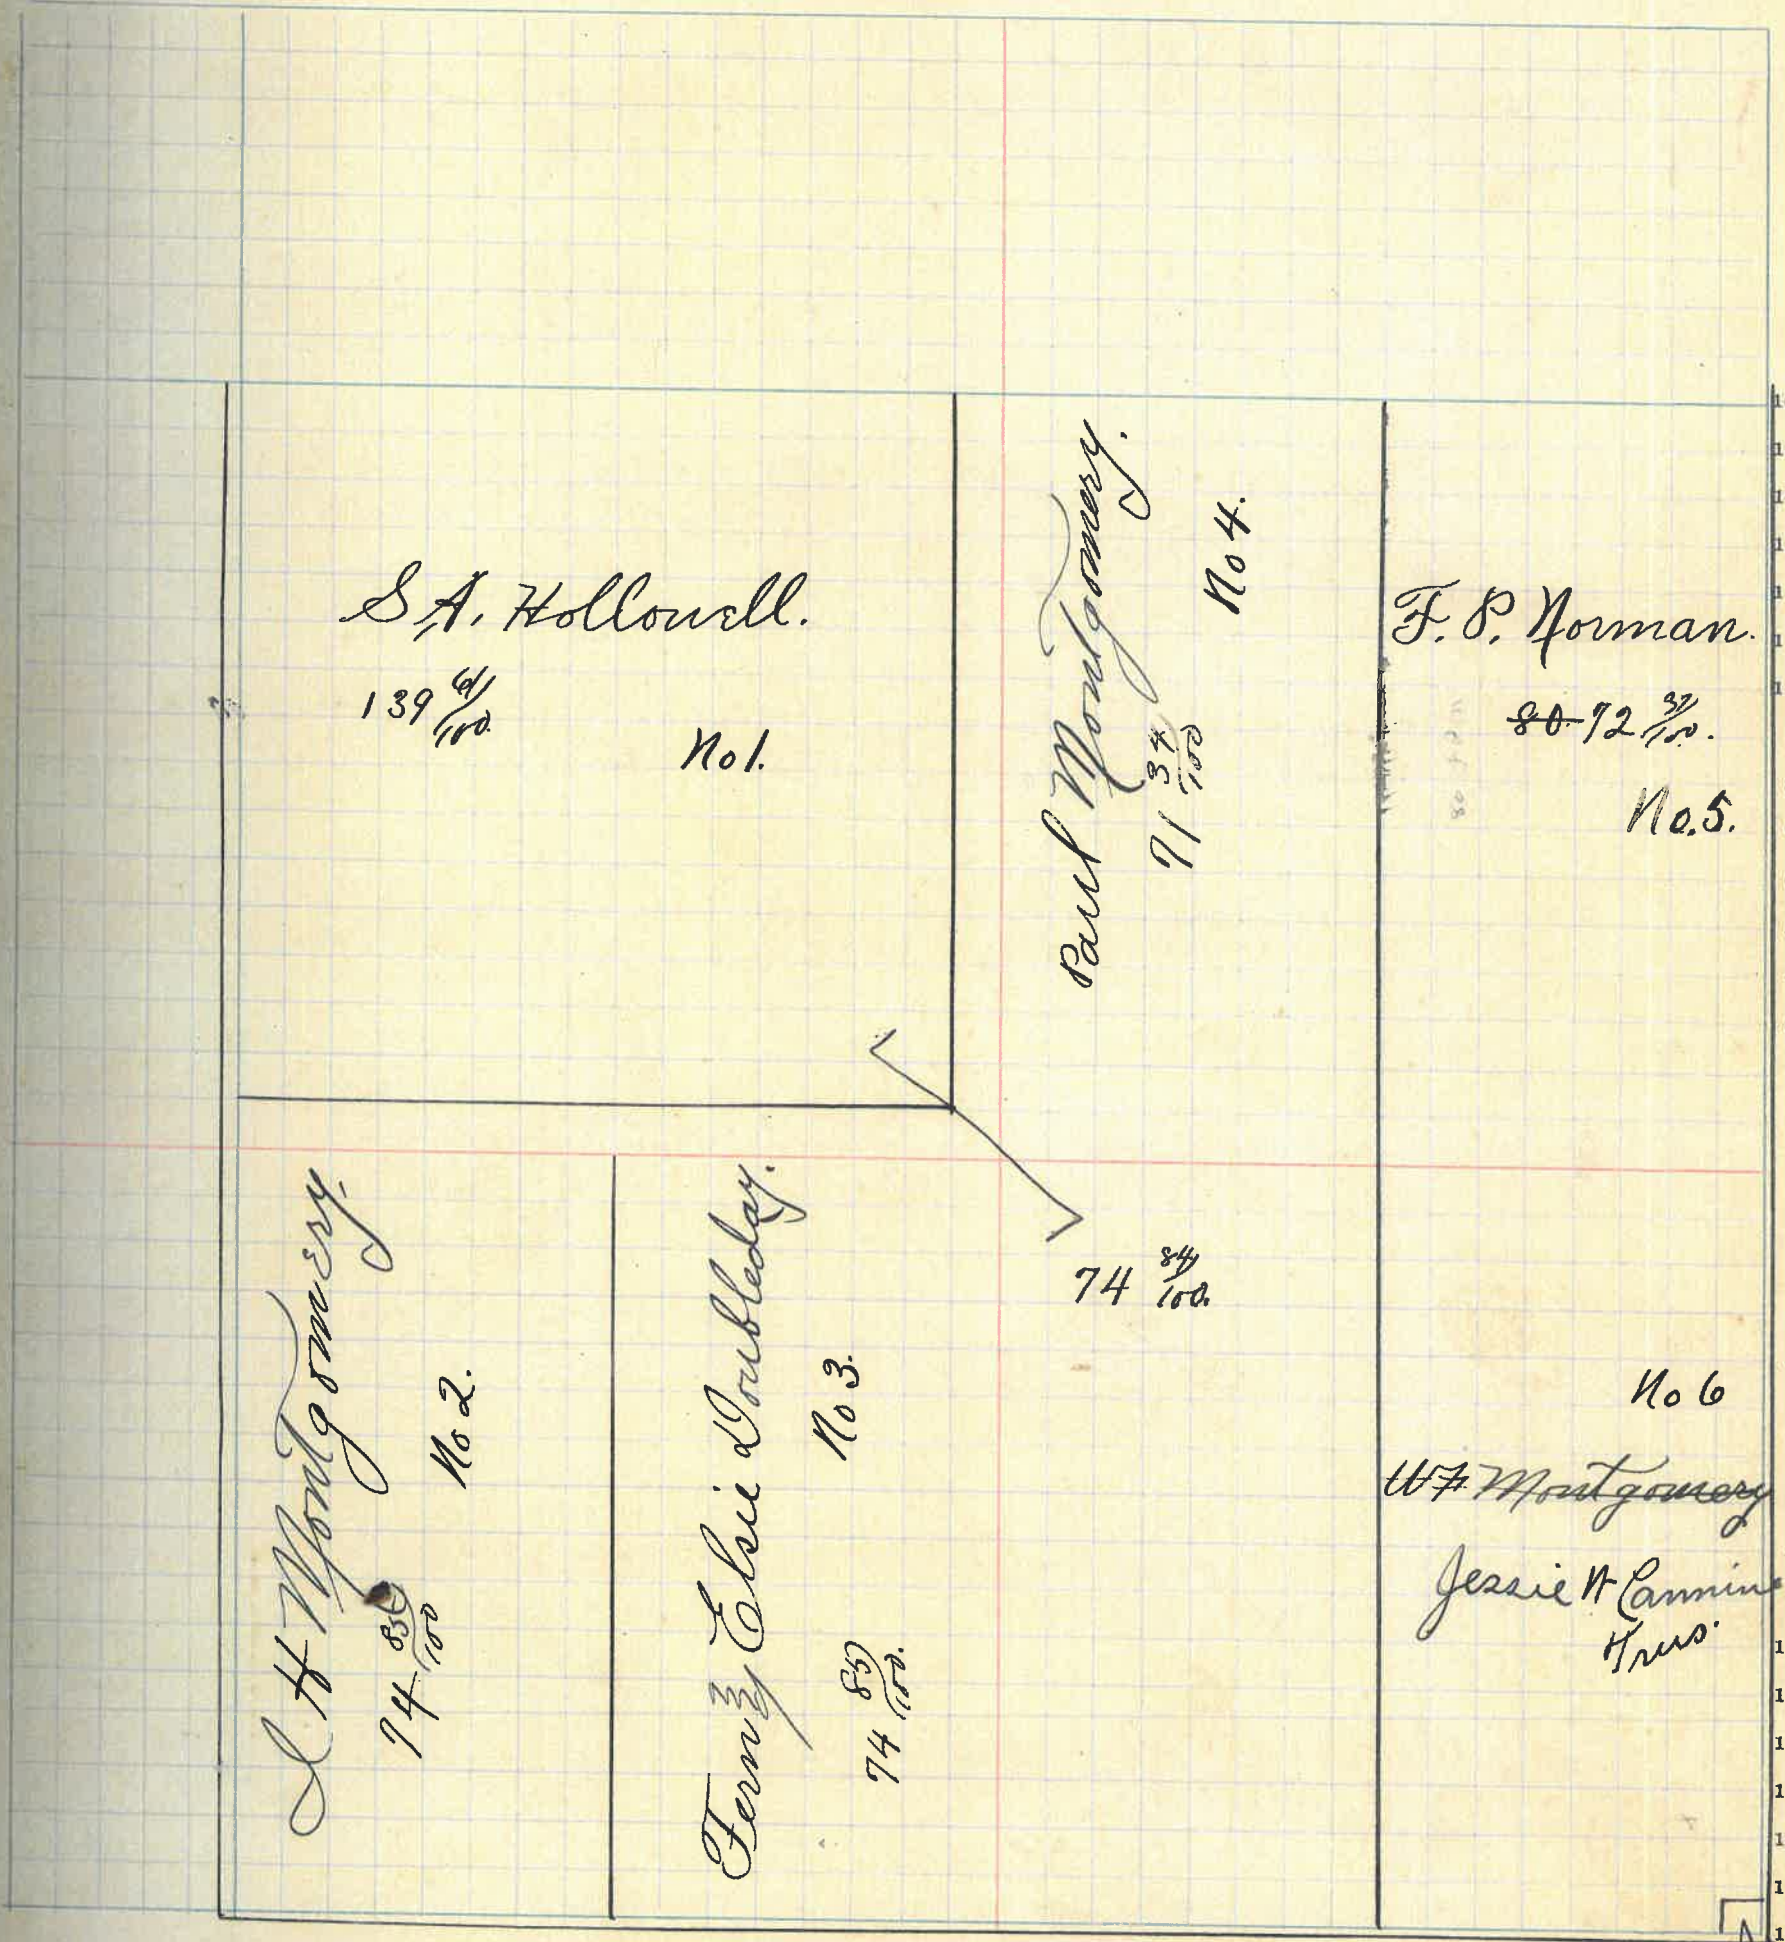 S.A. Hollowell.
139 61/100
No 1.
Paul Montgomery.
71 34/100
No 4.
F. P. Norman.
80 72 37/100.
No. 5.
I H Montgomery.
74 85/100
No 2.
Fern Elsie Doubleday.
74 85/100.
No 3.
74 84/100.
No 6
W F Montgomery
Jessie
Trus.